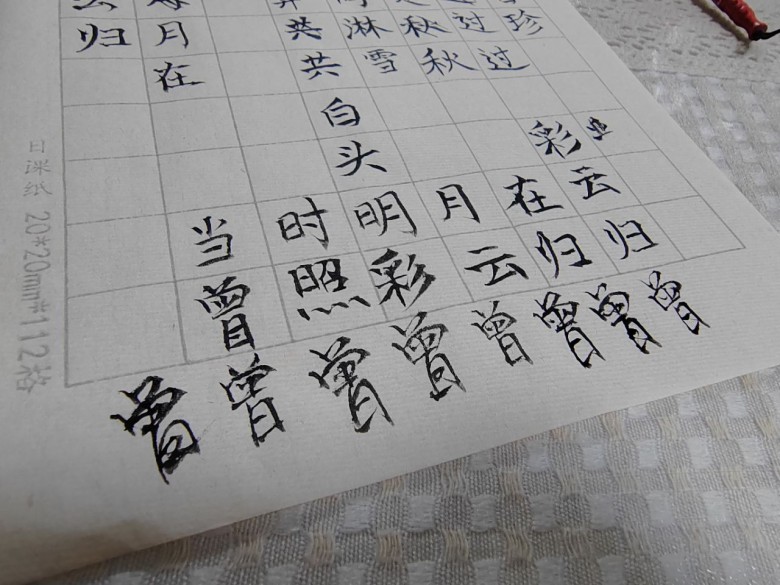 归 月 共 淋 秋 过 珍
在 共 雪 秋 过
白
头 彩
当 时 明 月 在 云
曾 照 彩 云 归 归
曾 曾 曾 曾 曾 曾 曾 曾
日课纸 20*20mm*112格